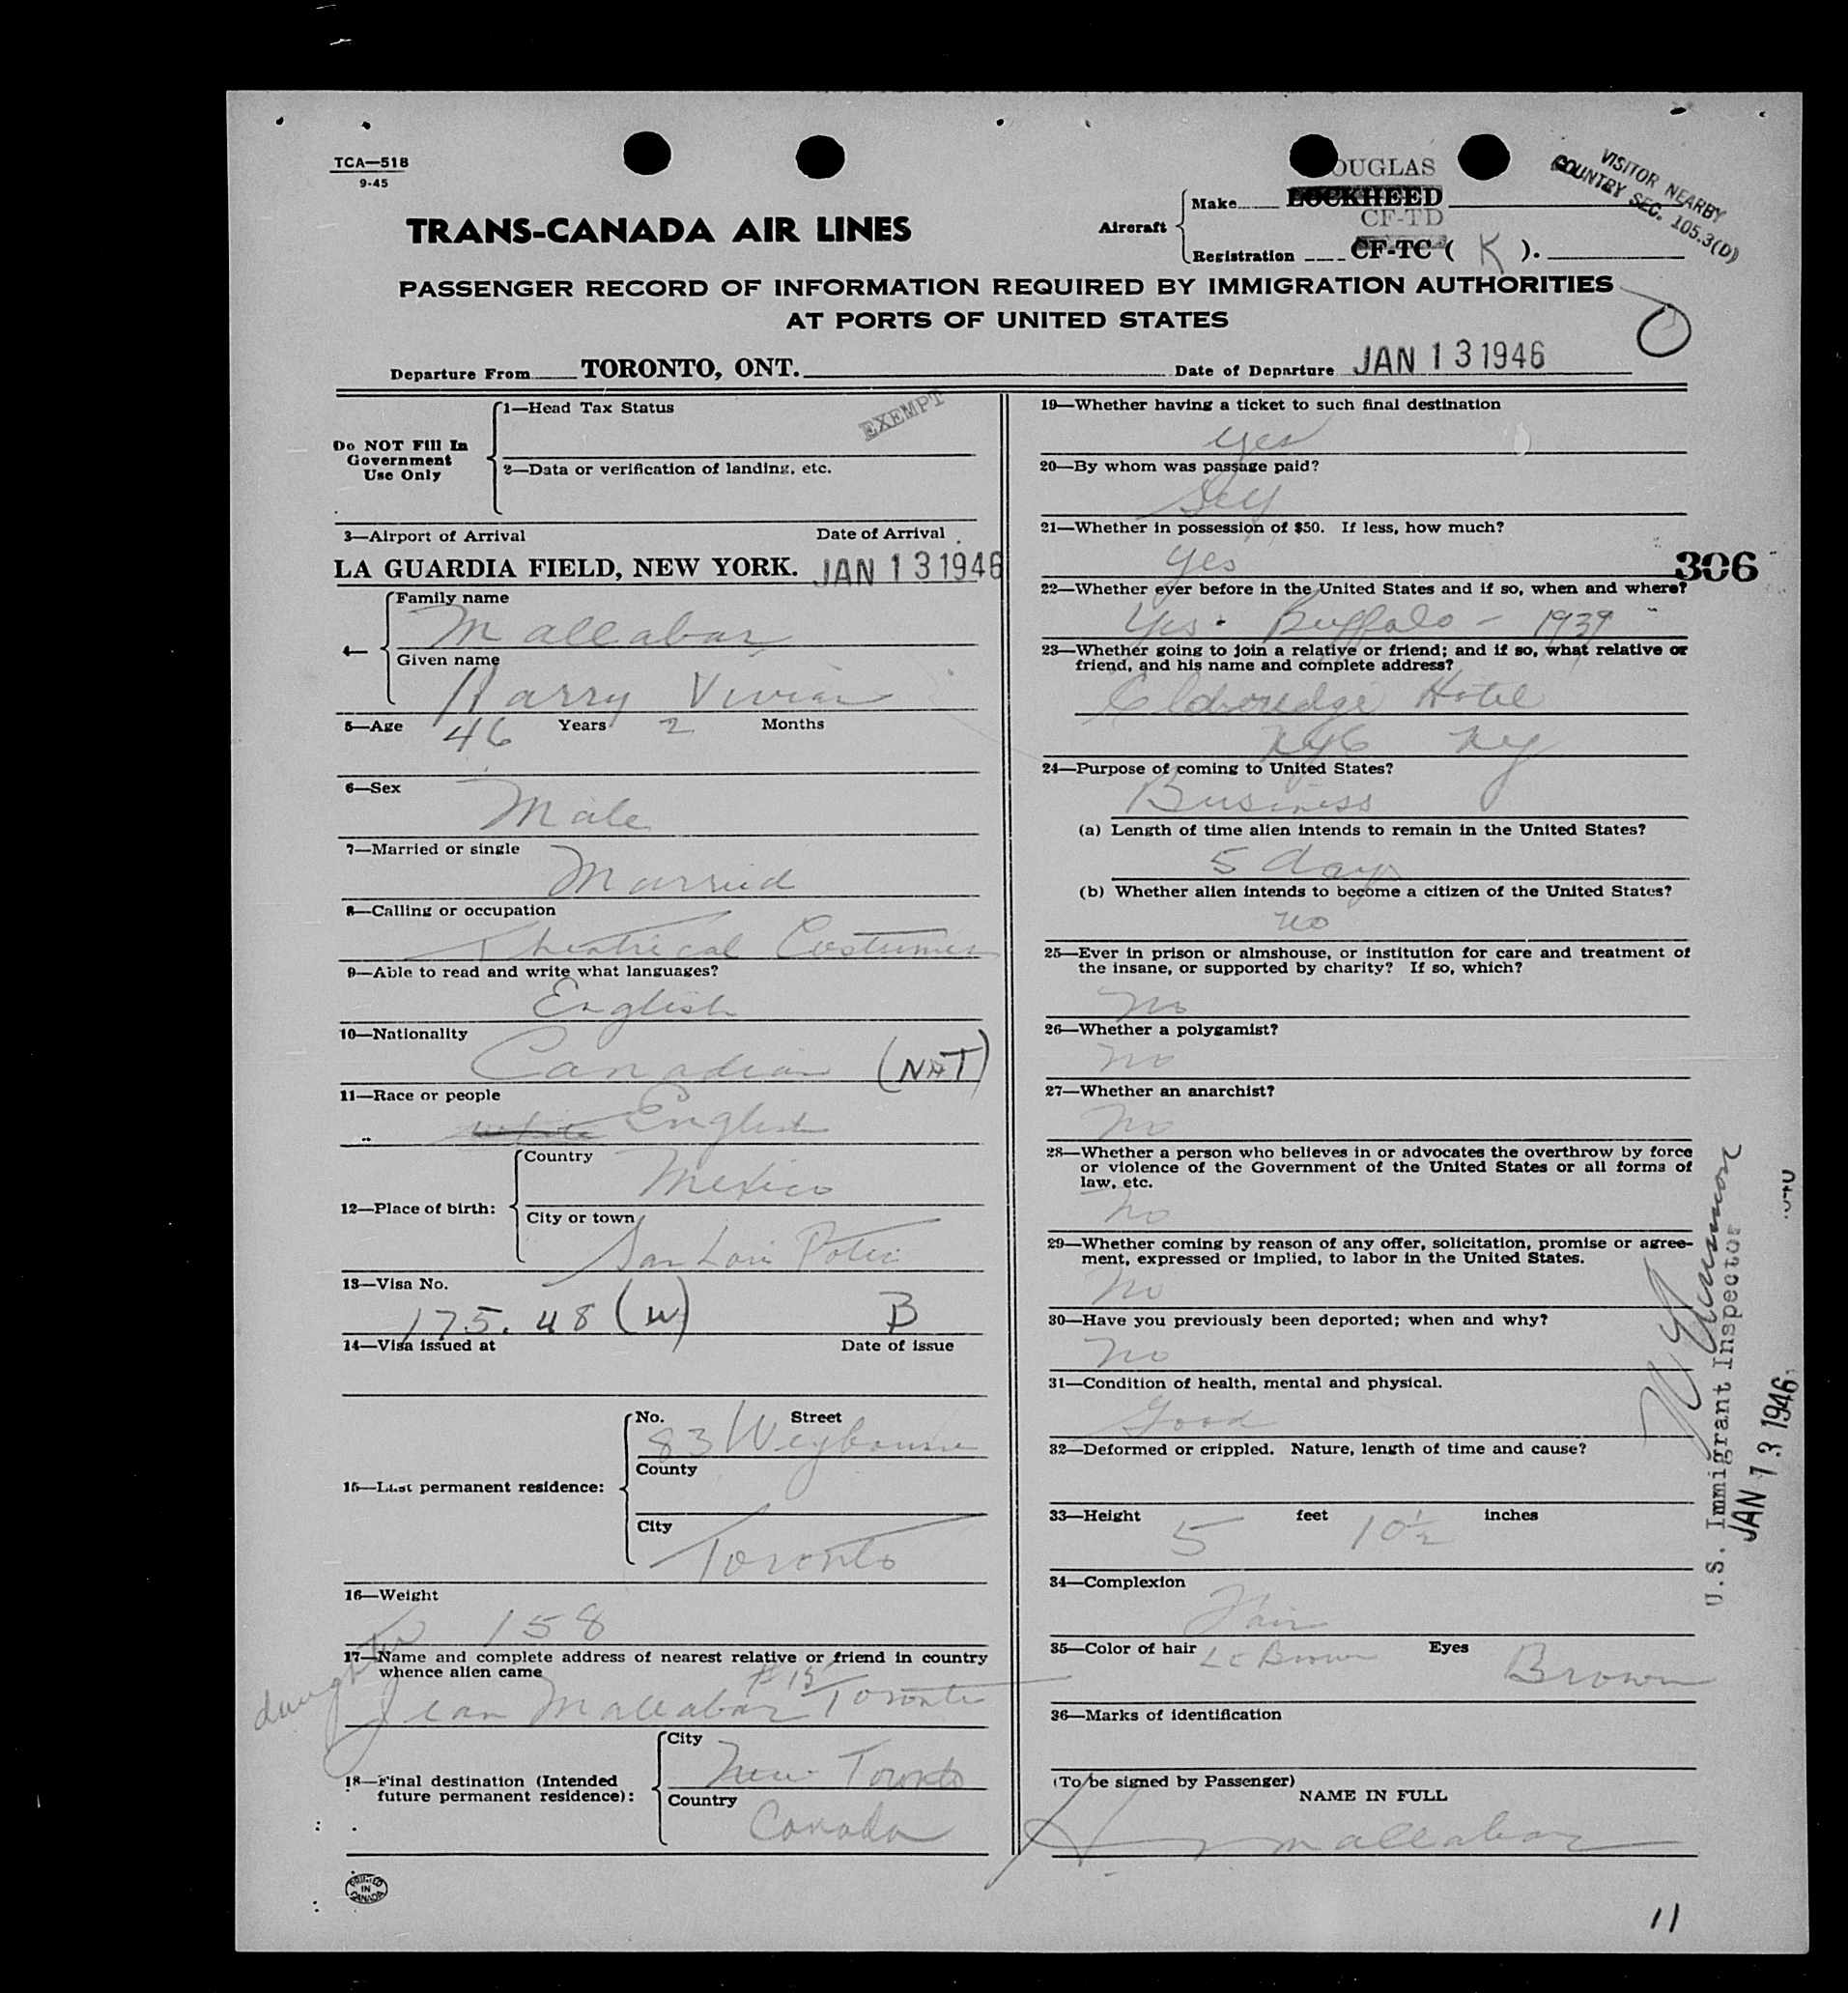 TCA—518
9-45
OUGLAS
Aircraft
Make LOCKHEED
CF-TD
Registration CF-TC ( K ).
VISITOR NEARBY
COUNTRY SEC. 105.3(D)
TRANS-CANADA AIR LINES
PASSENGER RECORD OF INFORMATION REQUIRED BY IMMIGRATION AUTHORITIES
AT PORTS OF UNITED STATES
Departure From TORONTO, ONT. Date of Departure JAN 13 1946
Do NOT Fill In
Government
Use Only
1—Head Tax Status EXEMPT
2—Data or verification of landing, etc.
3—Airport of Arrival Date of Arrival
LA GUARDIA FIELD, NEW YORK. JAN 13 1946
4— Family name
Mallabar
Given name
Harry Vivian
5—Age 46 Years 2 Months
6—Sex
Male
7—Married or single
Married
8—Calling or occupation
Theatrical Costumer
9—Able to read and write what languages?
English
10—Nationality
Canadian (NAT)
11—Race or people
white English
12—Place of birth:
Country
Mexico
City or town
San Luis Potosi
13—Visa No.
175.48 (W) B
14—Visa issued at Date of issue
15—Last permanent residence:
No. Street
83 Weybourne
County
City
Toronto
16—Weight
158
17—Name and complete address of nearest relative or friend in country
whence alien came
daughter
Jean Mallabar #15 Toronto
18—Final destination (Intended
future permanent residence):
City
Toronto
Country
Canada
PRINTED
IN
CANADA
19—Whether having a ticket to such final destination
yes
20—By whom was passage paid?
Self
21—Whether in possession of $50. If less, how much?
yes
306
22—Whether ever before in the United States and if so, when and where?
Yes - Buffalo - 1939
23—Whether going to join a relative or friend; and if so, what relative or
friend, and his name and complete address?
Hotel
NYC NY
24—Purpose of coming to United States?
Business
(a) Length of time alien intends to remain in the United States?
5 days
(b) Whether alien intends to become a citizen of the United States?
no
25—Ever in prison or almshouse, or institution for care and treatment of
the insane, or supported by charity? If so, which?
no
26—Whether a polygamist?
no
27—Whether an anarchist?
no
28—Whether a person who believes in or advocates the overthrow by force
or violence of the Government of the United States or all forms of
law, etc.
no
29—Whether coming by reason of any offer, solicitation, promise or agree-
ment, expressed or implied, to labor in the United States.
no
30—Have you previously been deported; when and why?
no
31—Condition of health, mental and physical.
Good
32—Deformed or crippled. Nature, length of time and cause?
33—Height 5 feet 10½ inches
34—Complexion
Fair
35—Color of hair Lt Brown Eyes Brown
36—Marks of identification
(To be signed by Passenger)
NAME IN FULL
H. Mallabar
U.S. Immigrant Inspector
JAN 13 1946
11